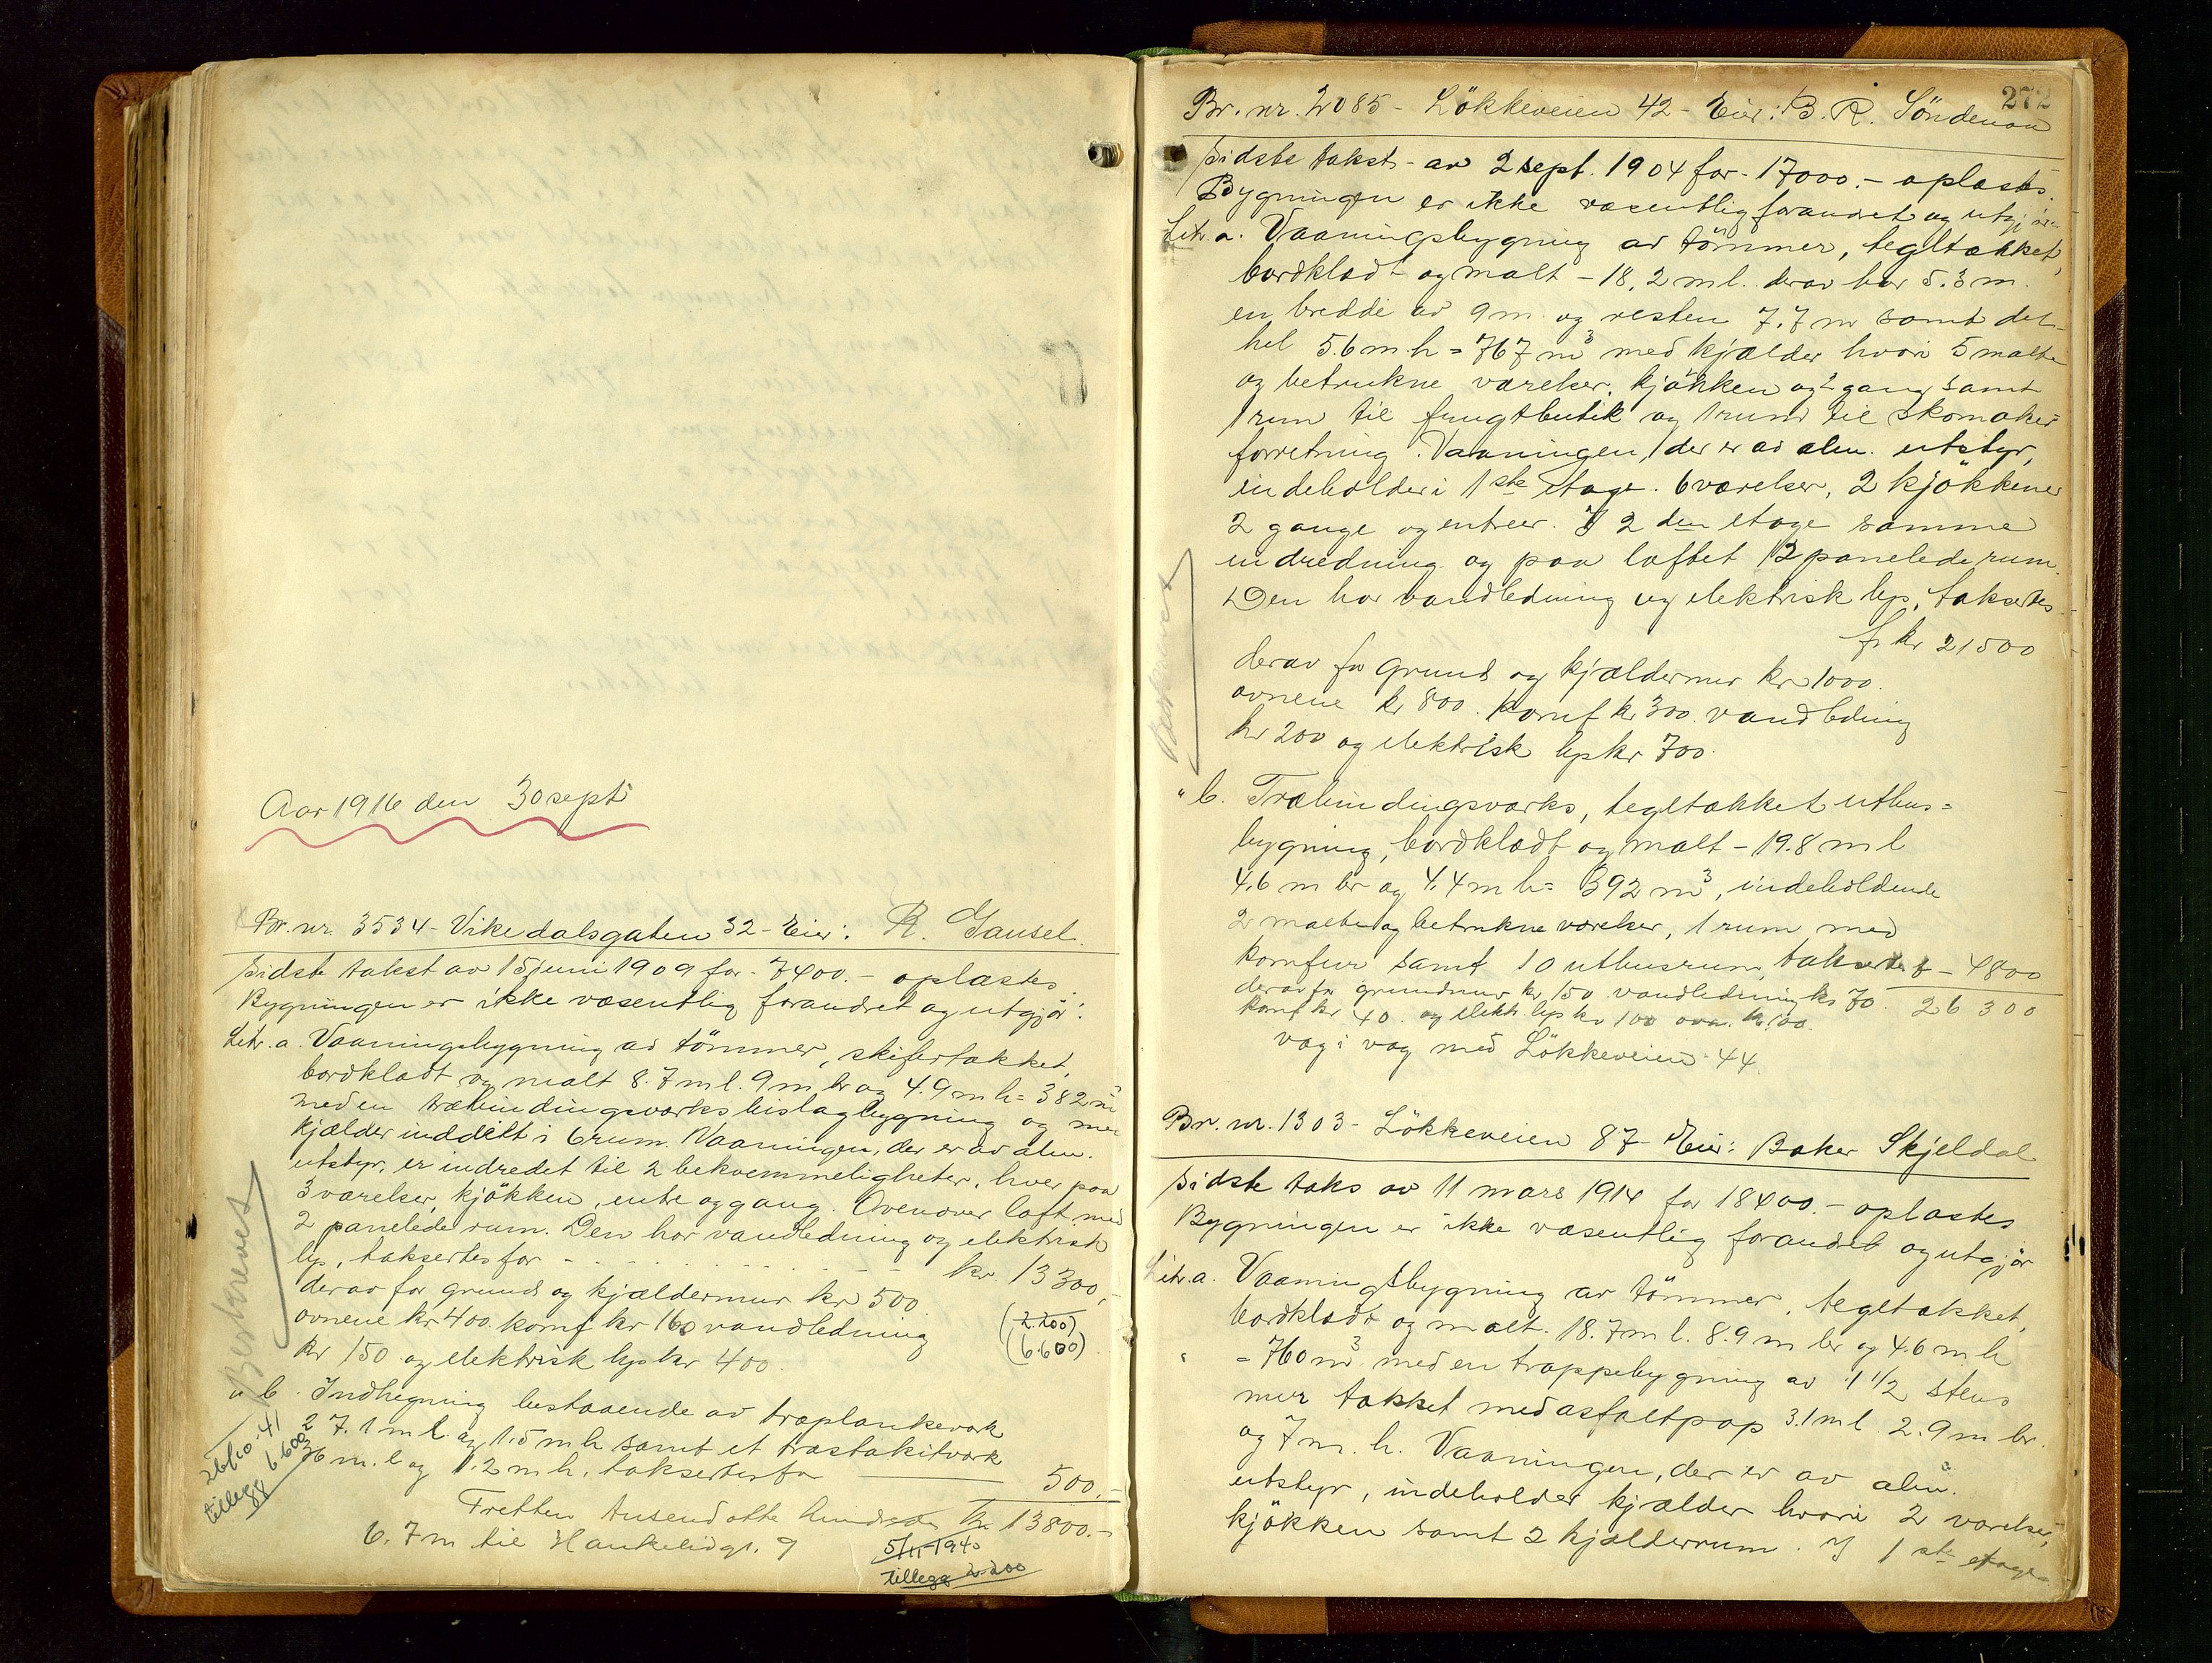 Aar 1916 den 30 sept
Br. nr. 3534 - Vikedalsgaten 32 - Eier: R. Gausel.
Sidste takst av 15 juni 1909 for - 7400.- oplæstes.
Bygningen er ikke væsentlig forandret og utgjør:
Litr. a. Vaaningsbygning av tømmer, skifertækket,
bordklædt og malt 8.7 m l. 9 m br og 4.9 m h = 382 m³
med en træbindingsverks bislagbygning og med
kjælder inddelt i 6 rum. Vaaningen, der er av alm.
utstyr, er indredet til 2 bekvemmeligheter, hver paa
3 værelser, kjøkken, entre og gang. Ovenover loft med
2 panelede rum. Den har vandledning og elektrisk
lys, taksertes for - - - - kr. 13300,-
derav for grund og kjældermur kr 500.
ovnene kr 400. komf kr 160 vandledning
(2.200)
kr 150 og elektrisk lys kr 400.
(6.600)
Bestorevet
" b. Indhegning bestaaende av træplankeverk
27.1 m l. og 1.5 m h samt et træstakitverk
36 m. l og 1.2 m h, taksertes for 500.-
26/10-41
tillegg 6.600
Tretten tusend otte hundrede Kr 13800.-
6.7 m til Haukelidgt. 9
5/11-1940
tillegg 2.200
272
Br. nr. 2085 - Løkkeveien 42 - Eier: B. R. Søndenaa
Sidste takst - av 2 sept. 1904 for - 17000.- oplæstes.
Bygningen er ikke væsentlig forandret og utgjør:
Litr. a. Vaaningsbygning av tømmer, tegltækket,
bordklædt og malt - 18.2 m l. derav har 5.3 m.
en bredde av 9 m og resten 7.7 m samt det
hel 5.6 m h = 767 m³ med kjælder hvori 5 malte
og betrukne værelser, kjøkken og 2 gang samt
1 rum til frugtbutik og 1 rum til skomaker=
forretning. Vaaningen, der er av alm. utstyr,
indeholder i 1ste etage. 6 værelser, 2 kjøkkener
2 gange og entreer. I 2 den etage samme
indredning og paa loftet 12 panelede rum.
Den har vandledning og elektrisk lys, taksertes
for kr 21500
derav for grund og kjældermur kr 1000.
ovnene kr 800. komf kr 300. vandledning
kr 200 og elektrisk lys kr 700.
" b. Træbindingsværks, tegltækket uthus=
bygning, bordklædt og malt - 19.8 m l
4.6 m br og 4.4 m h = 392 m³, indeholdende
2 malte og betrukne værelser, 1 rum med
komfur samt 10 uthusrum, taksertes f - 4800
derav for grundmur kr 150 vandledning kr 70. 26300
komf kr 40. og elektr. lys kr 100 ovn. kr 100.
væg i væg med Løkkeveien 44.
Br. nr. 1303 - Løkkeveien 87 - Eier: Baker Skjeldal
Sidste taks av 11 mars 1914 for 18400.- oplæstes
Bygningen er ikke væsentlig forandret og utgjør
Litr. a. Vaaningsbygning av tømmer, tegltækket,
bordklædt og malt. 18.7 m l. 8.9 m br og 4.6 m h
= 760 m³ med en trappebygning av 1 1/2 stens
mur tækket med asfaltpap 3.1 m l 2.9 m br.
og 7 m. h. Vaaningen, der er av alm.
utstyr, indeholder kjælder hvori 2 værelser,
kjøkken samt 2 kjælderrum. I 1 ste etage